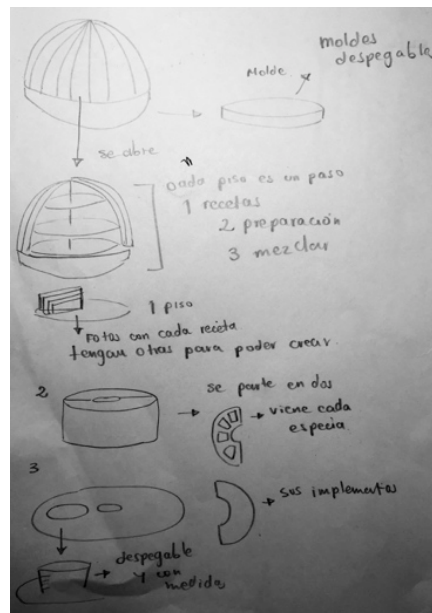 moldes
despegable
Molde
se abre
Cada piso es un paso
1 recetas
2 preparación
3 mezclar
1 piso
Fotos con cada receta
tengan otras para poder crear.
2
se parte en dos
viene cada
especia
3
sus implementos
despegable
y con
medidas